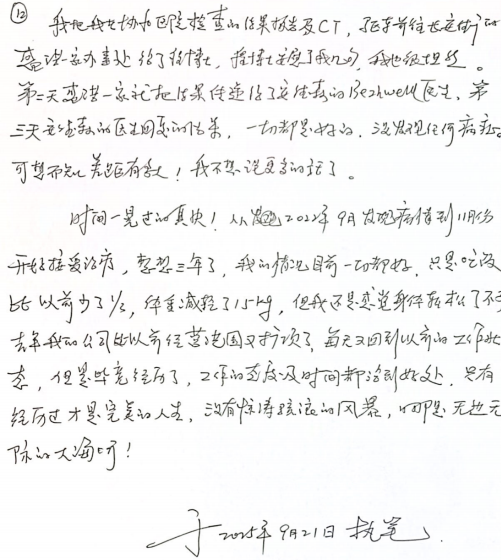 ⑫ 我把我在协和医院检查的结果报告及CT，驱车前往长安街的
盛诺一家办事处给了韩博士，韩博士安慰了我几句，我也很坦然。
第二天盛诺一家就把结果传递给了安德森的Bezhwell医生，第
三天安德森的医生回复的结果，一切都是好的，没发现任何病症。
可想而知差距有多大！我不想说更多的话了。
时间一晃过的真快！从 2022年9月发现病情到11月份
开始接受治疗，整整三年了，我的情况目前一切都好，只是吃饭
比以前少了1/3，体重减轻了15kg，但我还是感觉身体轻松了不
去年我的公司比以前经营范围又扩项了，每天又回到以前的工作状
态，但是毕竟经历了，工作的态度及时间都恰到好处，只有
经历过才是完美的人生，没有惊涛骇浪的风暴，哪是无边无
际的大海呀！
于2025年9月21日 执笔